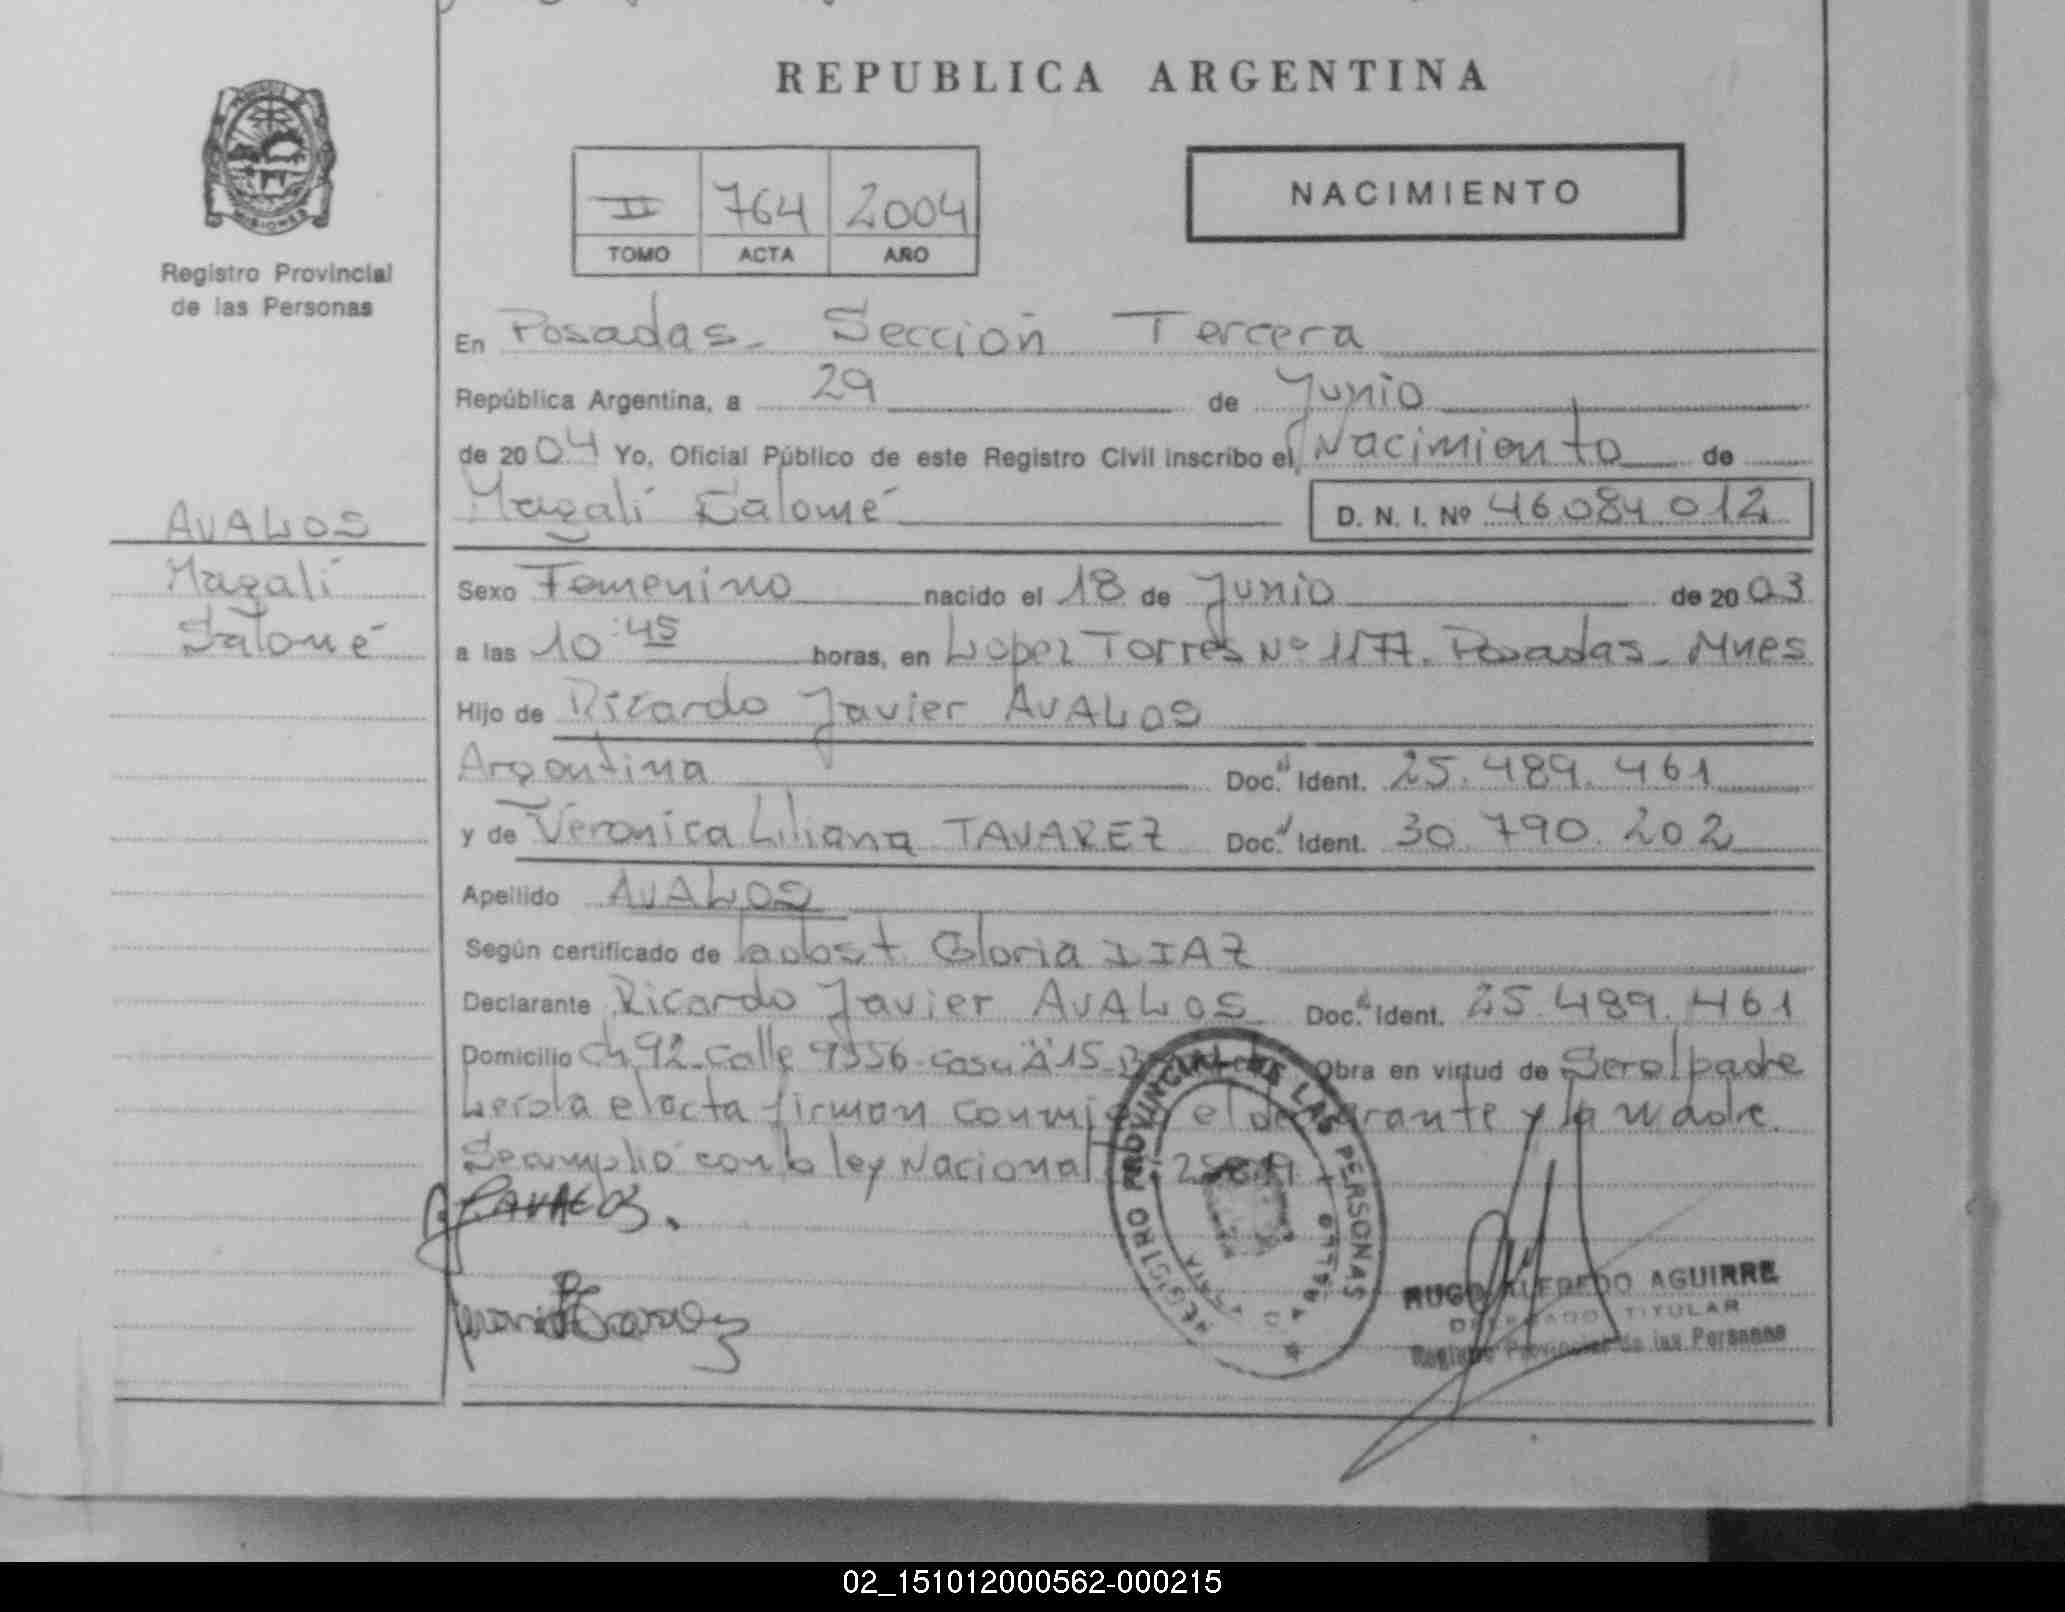 REPUBLICA ARGENTINA
II 764 2004
TOMO ACTA AÑO
NACIMIENTO
MISIONES
Registro Provincial
de las Personas
En Posadas - Sección Tercera
República Argentina, a 29 de Junio
de 2004 Yo, Oficial Público de este Registro Civil inscribo el Nacimiento de
Magalí Salomé D. N. I. Nº 46.084.012
AVALOS
Magalí
Salomé
Sexo Femenino nacido el 18 de Junio de 2003
a las 10:45 horas, en Lopez Torres Nº 1177. Posadas - Mnes
Hijo de Ricardo Javier AVALOS
Argentina Doc. Ident. 25.489.461
y de Veronica Liliana TAVAREZ Doc. Ident. 30.790.202
Apellido AVALOS
Según certificado de Gloria DIAZ
Declarante Ricardo Javier AVALOS Doc. Ident. 25.489.461
Domicilio Ch 92 - Calle casa 15 Obra en virtud de Ser el padre
Leída el acta firman conmigo el declarante y la madre.
Se cumplió con la ley Nacional
REGISTRO PROVINCIAL DE LAS PERSONAS
HUGO ALFREDO AGUIRRE
DELEGADO TITULAR
Registro Provincial de las Personas
02_151012000562-000215